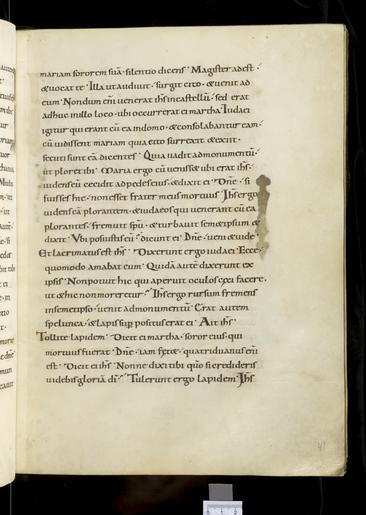 mariam sororem suā silentio dicens Magister adest ·
& vocat te · Illa ut audivit · surgit cito · & venit ad
eum · Nondum eni venerat ihs in castellū · sed erat
adhuc in illo loco · ubi occurrerat ei martha · Iudaei
igitur qui erant cū ea in domo · & consolabantur eam ·
cū vidissent mariam quia cito surrexit & exiit ·
secuti sunt eā dicentes · Quia vadit ad monumentū ·
ut plor& ibi · Maria ergo cū venisset ubi erat ihs ·
videns eū cecidit ad pedes eius · & dixit ei · Dne · si
fuisses hic · non esset frater meus mortuus · Ihs ergo
videns eā plorantem · & iudaeos qui venerant cū ea
plorantes · fremuit spū · & turbavit semetipsum &
dixit · Ubi posuistis eū · dicunt ei · Dne · veni & vide ·
Et lacrimatus est ihs · Dixerunt ergo iudaei · Ecce
quomodo amabat eum · Quidā aut dixerunt ex
ipsis · Non potuit hic qui aperuit oculos caeci facere ·
ut & hic non moreretur · Ihs ergo rursum fremens
in semetipso · venit ad monumentū · Erat autem
spelunca · & lapis sup positus erat ei · Ait ihs ·
Tollite lapidem · Dicit ei martha · soror eius qui
mortuus fuerat · Dne · iam foetet · quatriduanus eni
est · Dicit ei ihs · Nonne dixi tibi quo si credideris
videbis gloriā di · Tulerunt ergo lapidem · Ihs